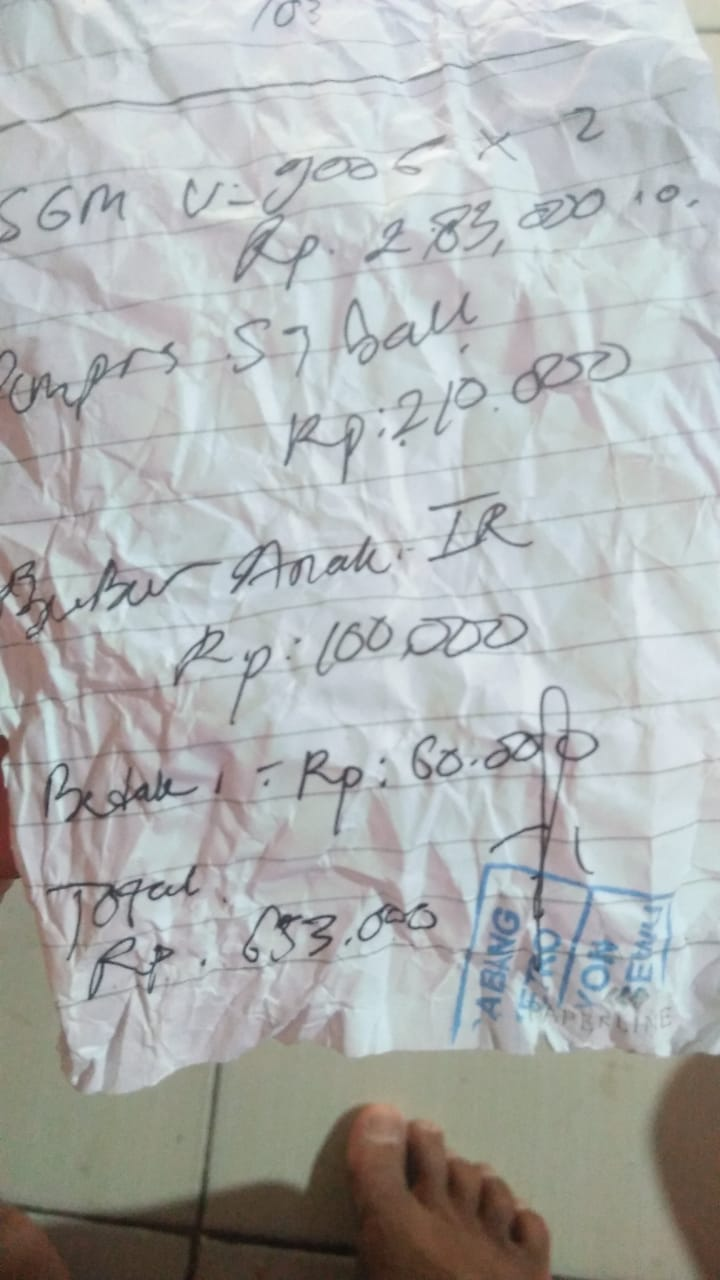 103
SGM V= 900 G x 2
Rp. 283,000
Pampers S7 ball
Rp: 210.000
BuBur Anak. IR
Rp: 100.000
Bedak, = Rp: 60.000
Total.
Rp. 653.000
ABANG
YON
SEWU
PAPERLINE